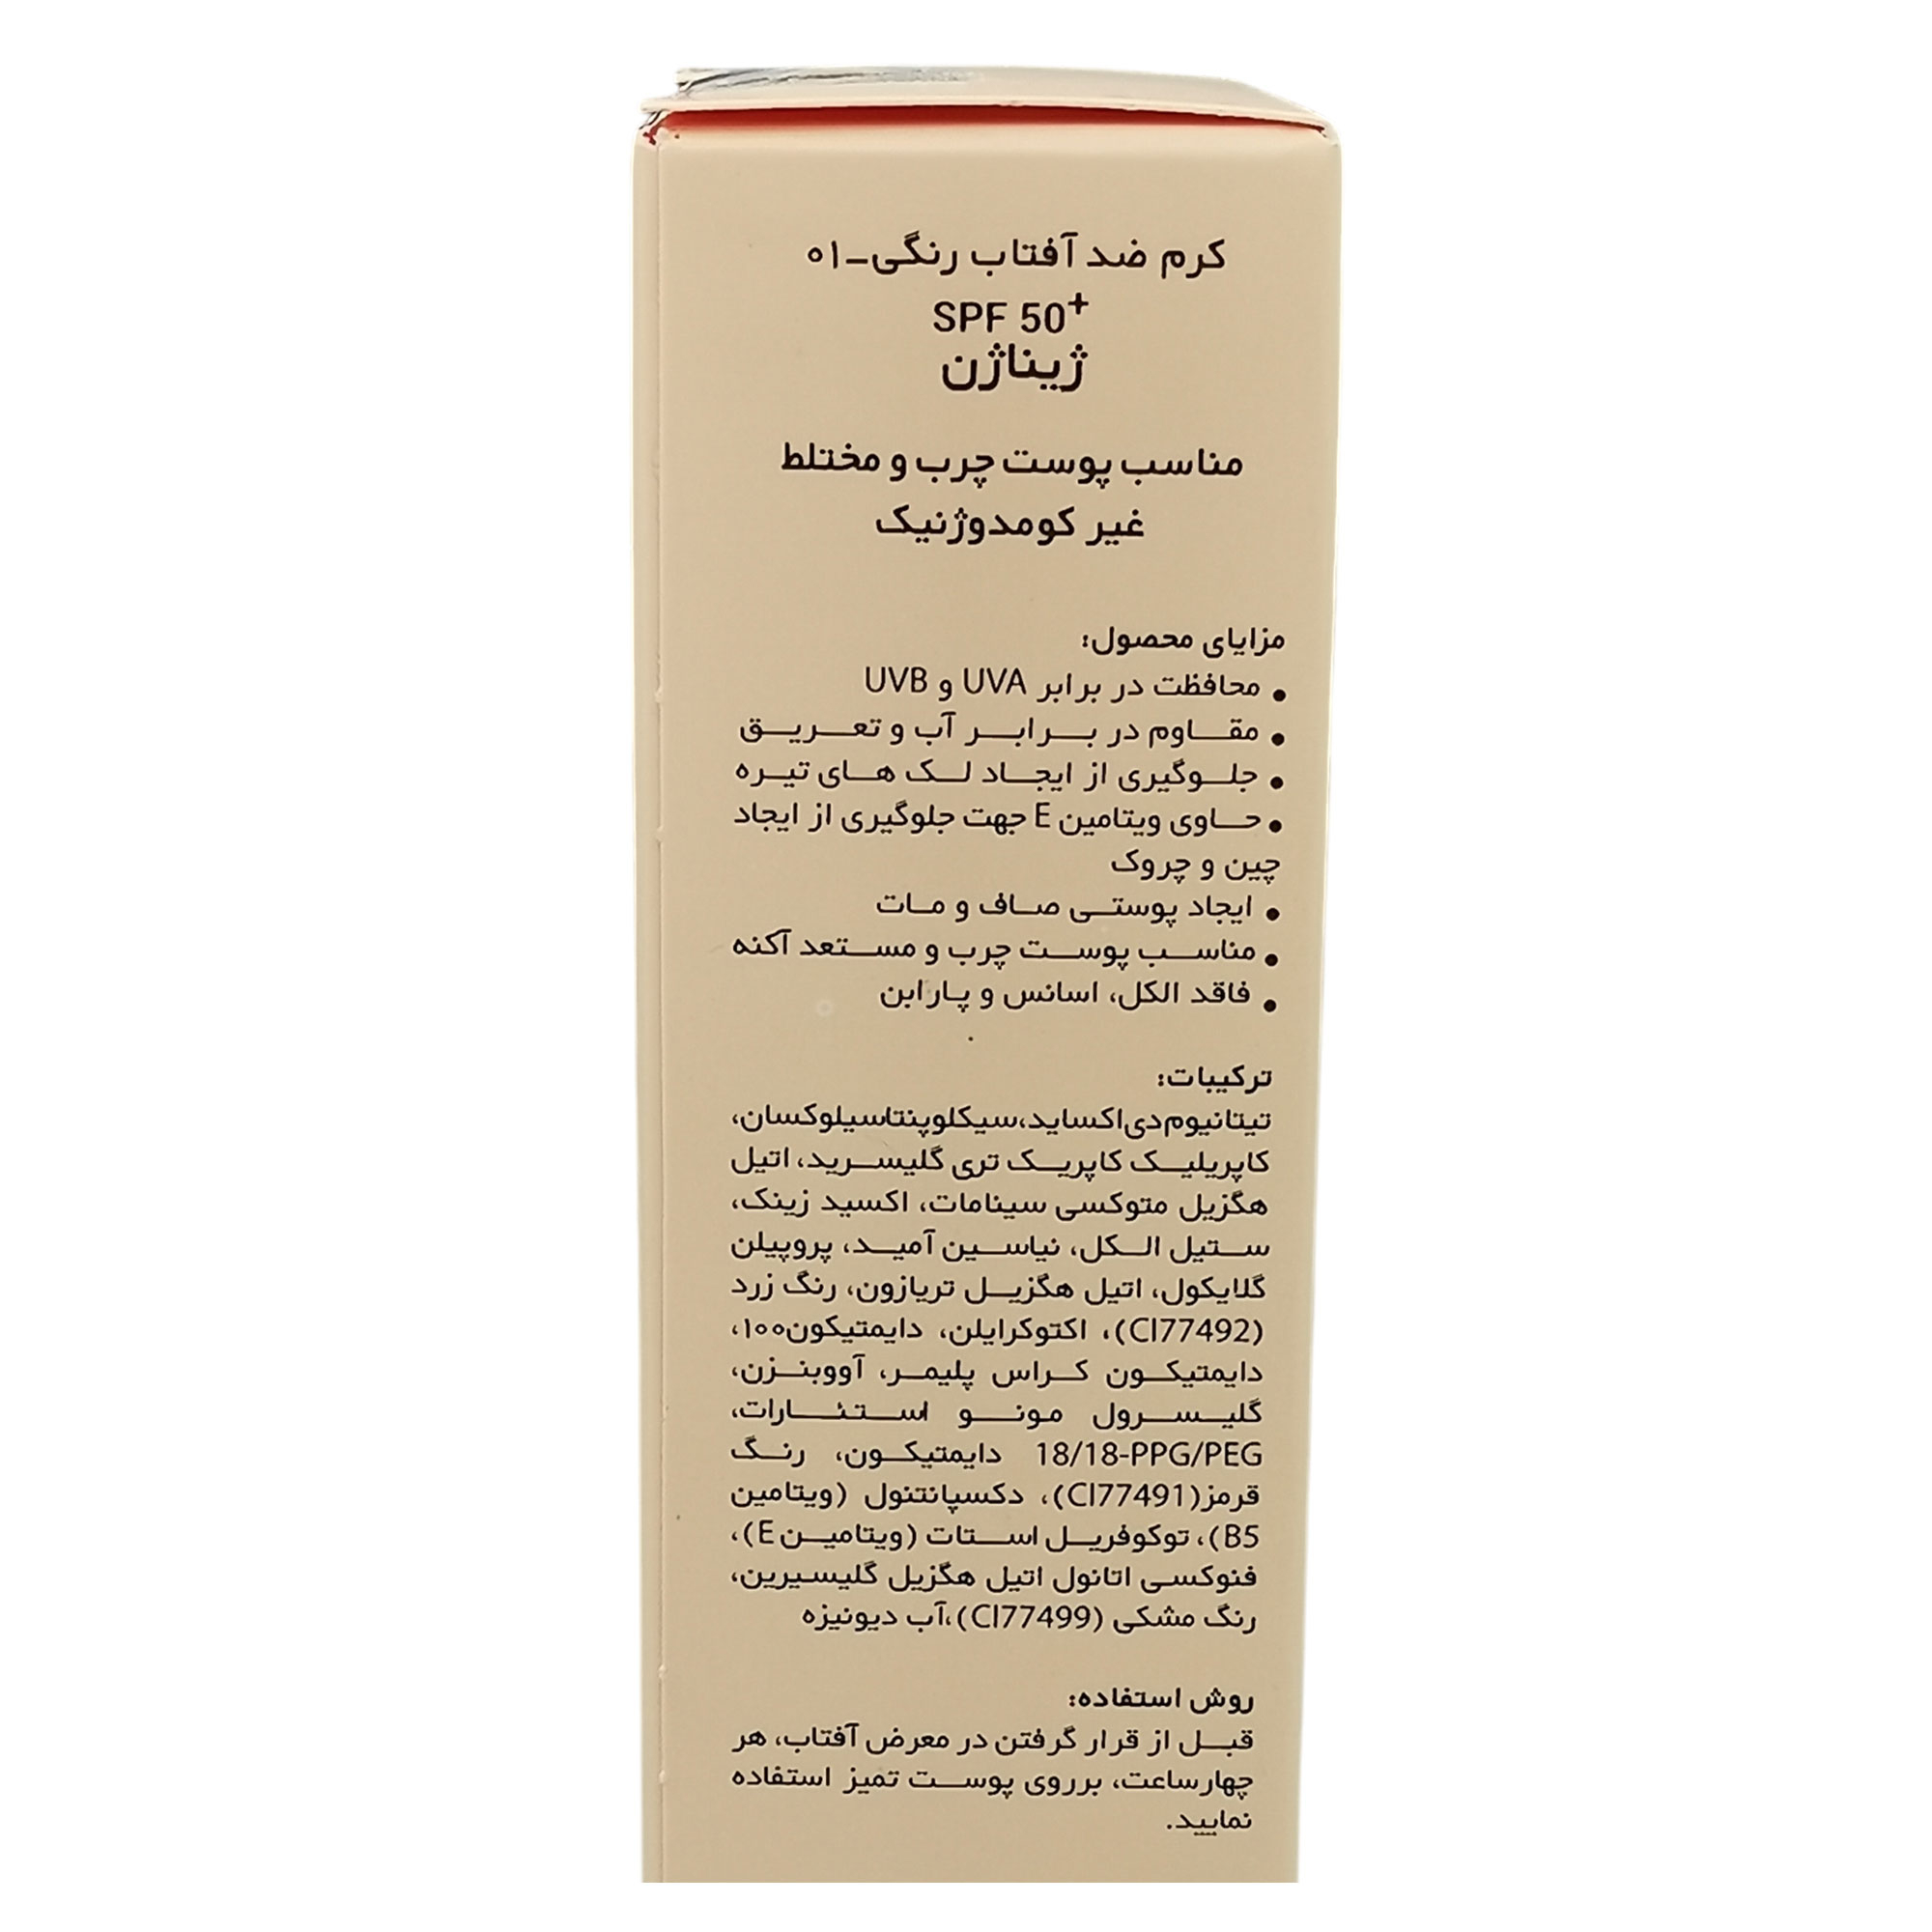 کرم ضد آفتاب رنگی_۰۱
SPF 50⁺
ژیناژن
مناسب پوست چرب و مختلط
غیر کومدوژنیک
مزایای محصول:
• محافظت در برابر UVA و UVB
• مقاوم در برابر آب و تعریق
• جلوگیری از ایجاد لک های تیره
• حاوی ویتامین E جهت جلوگیری از ایجاد
چین و چروک
• ایجاد پوستی صاف و مات
• مناسب پوست چرب و مستعد آکنه
• فاقد الکل، اسانس و پارابن
ترکیبات:
تیتانیوم‌دی‌اکساید،سیکلوپنتاسیلوکسان،
کاپریلیک کاپریک تری گلیسرید، اتیل
هگزیل متوکسی سینامات، اکسید زینک،
ستیل الکل، نیاسین آمید، پروپیلن
گلایکول، اتیل هگزیل تریازون، رنگ زرد
(CI77492)، اکتوکرایلن، دایمتیکون۱۰۰،
دایمتیکون کراس پلیمر، آووبنزن،
گلیسرول مونو استئارات،
18/18-PPG/PEG دایمتیکون، رنگ
قرمز(CI77491)، دکسپانتنول (ویتامین
B5)، توکوفریل استات (ویتامین E)،
فنوکسی اتانول اتیل هگزیل گلیسیرین،
رنگ مشکی (CI77499)،آب دیونیزه
روش استفاده:
قبل از قرار گرفتن در معرض آفتاب، هر
چهارساعت، برروی پوست تمیز استفاده
نمایید.